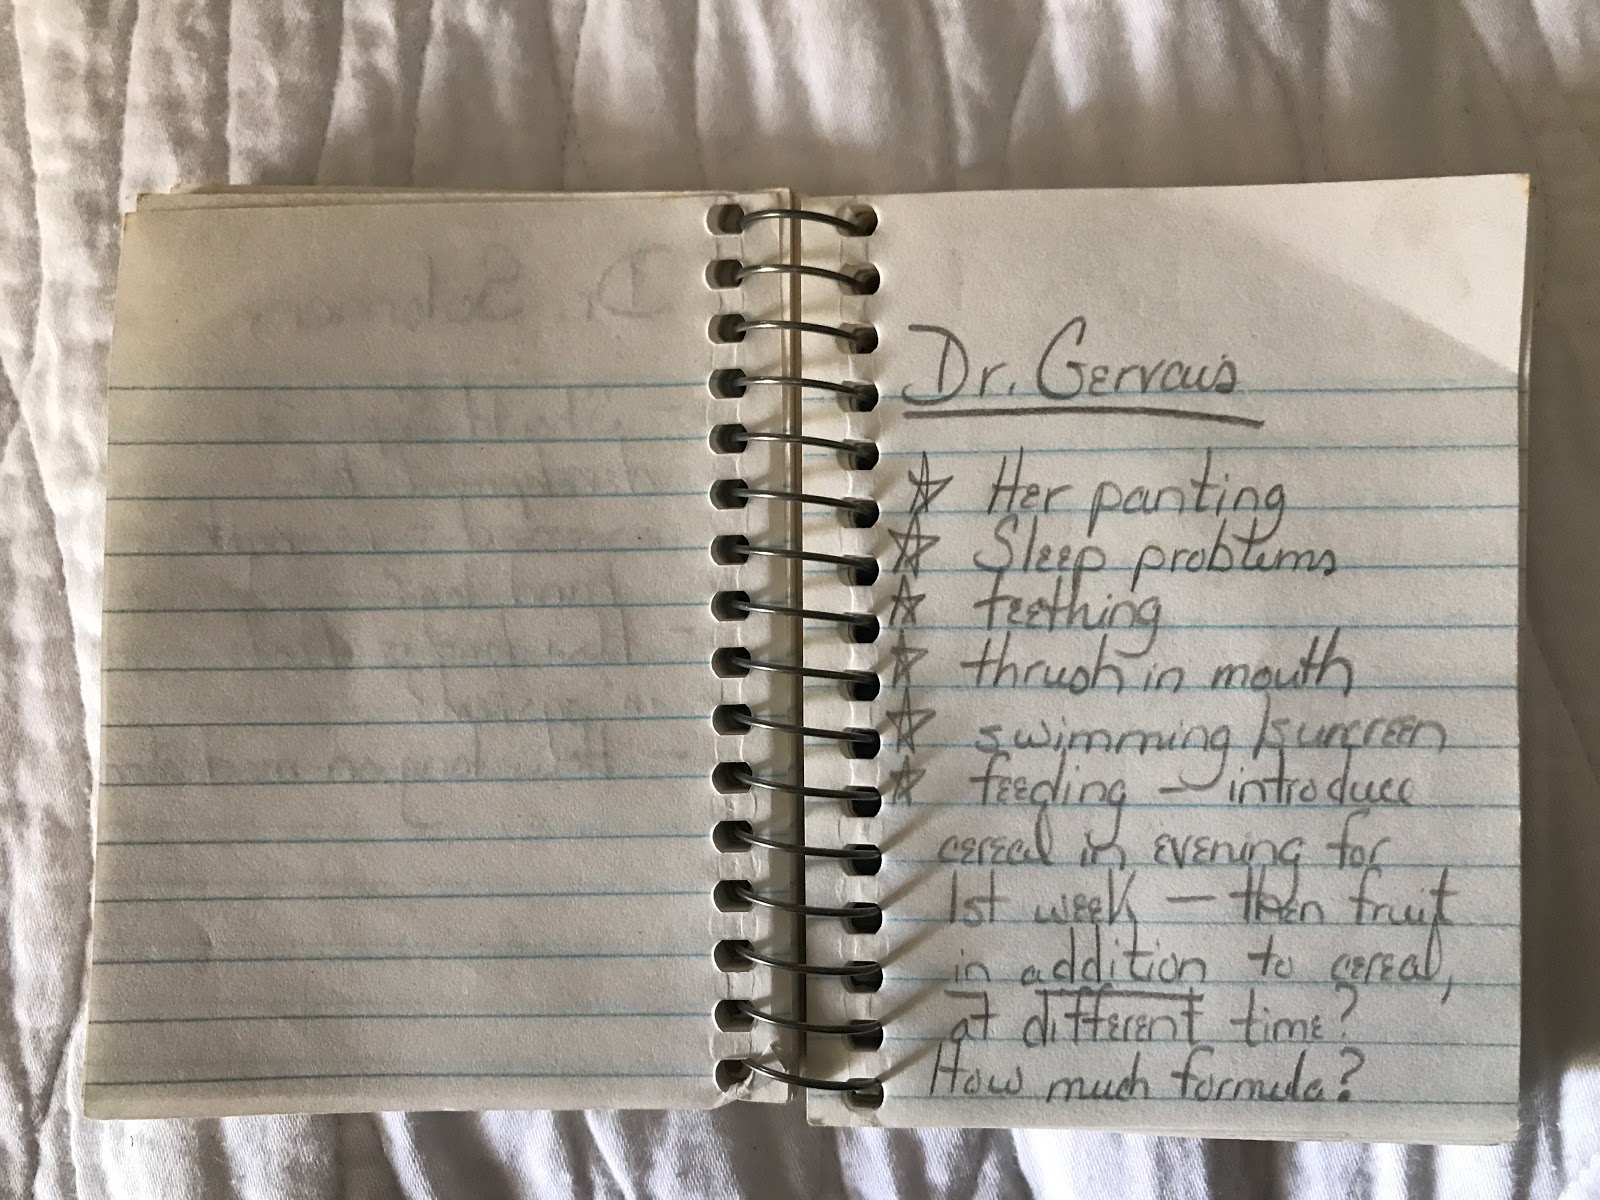 Dr. Solomon
Dr. Gervais
☆ Her panting
☆ Sleep problems
☆ teething
☆ thrush in mouth
☆ swimming/suncreen
☆ feeding – introduce
cereal in evening for
1st week – then fruit
in addition to cereal,
at different time?
How much formula?